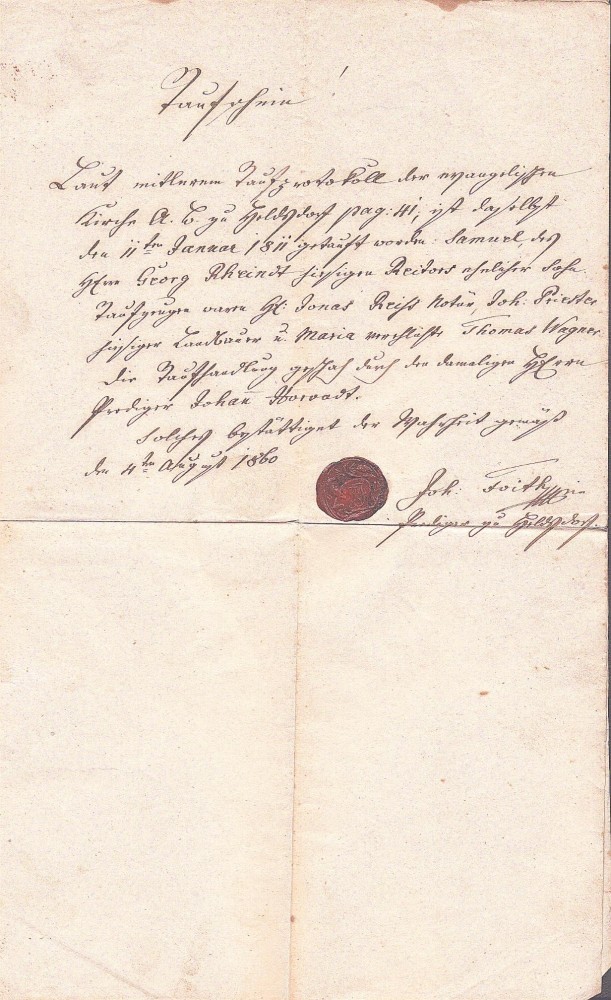 Taufschein!
Laut mitlerem Taufprotokoll der evangelischen
Kirche A. B. zu Heldsdorf pag: 41, ist daselbst
den 11ten Januar 1811 getauft worden: Samuel, des
Herrn Georg Rheindt hiesigen Rectors ehelicher Sohn.
Taufzeugen waren H: Jonas Reiss Notär, Joh: Priester
hiesiger Landbauer u. Maria verehlichte Thomas Wagner
Die Taufhandlung geschah durch den damaligen Herrn
Prediger Johañ Horvadt.
Solches bestättiget der Wahrheit gemäß
den 4ten August 1860
Joh: Foith
Prediger zu Heldsdorf.